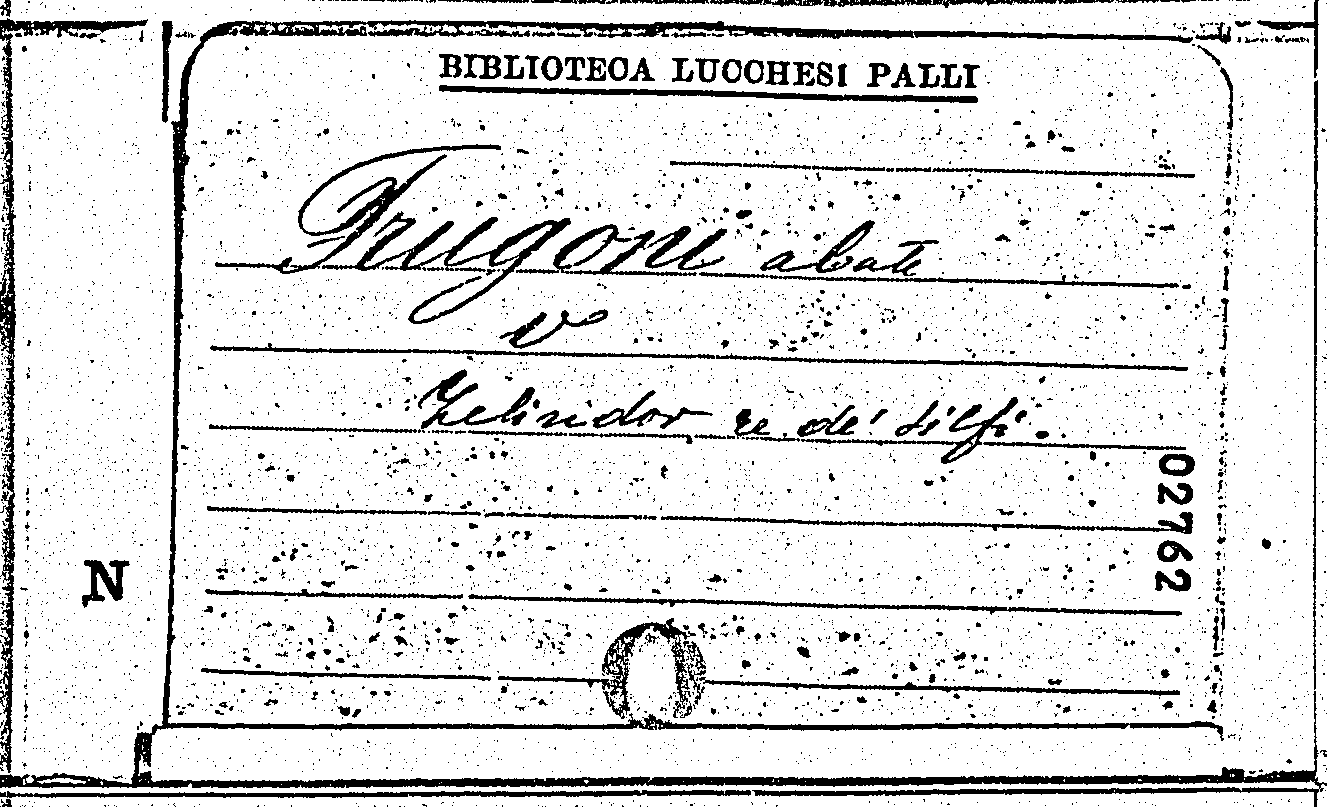 BIBLIOTECA LUCCHESI PALLI
Frugoni abate
v
Zelindor re de' silfi.
02762
N